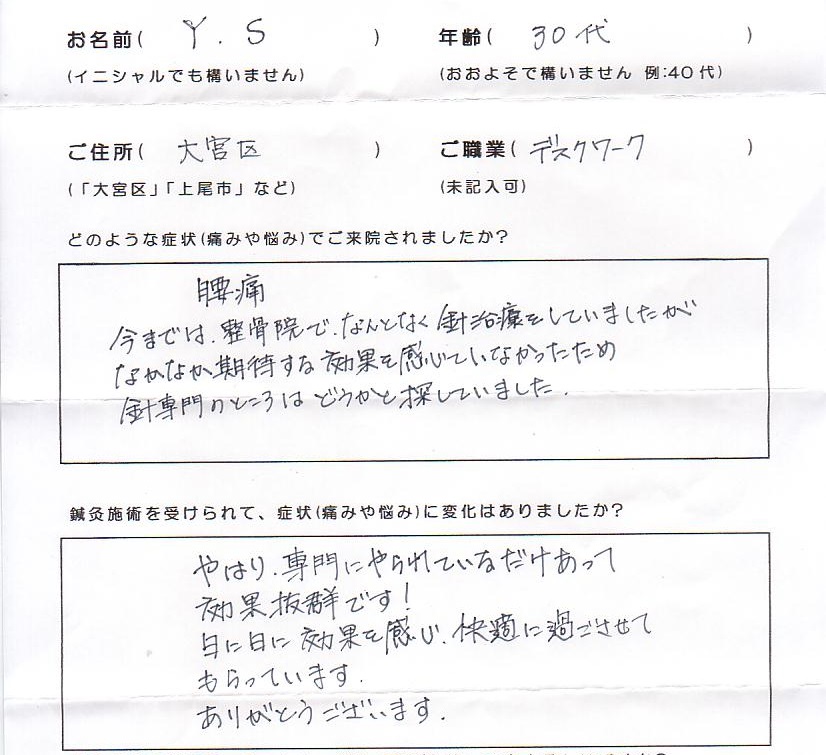 お名前( Y.S ) 年齢( 30代 )
(イニシャルでも構いません) (おおよそで構いません 例:40代)
ご住所( 大宮区 ) ご職業( デスクワーク )
(「大宮区」「上尾市」など) (未記入可)
どのような症状(痛みや悩み)でご来院されましたか?
腰痛
今までは、整骨院で、なんとなく針治療をしていましたが
なかなか期待する効果を感じていなかったため
針専門のところはどうかと探していました.
鍼灸施術を受けられて、症状(痛みや悩み)に変化はありましたか?
やはり、専門にやられているだけあって
効果抜群です!
日に日に効果を感じ、快適に過ごさせて
もらっています.
ありがとうございます.